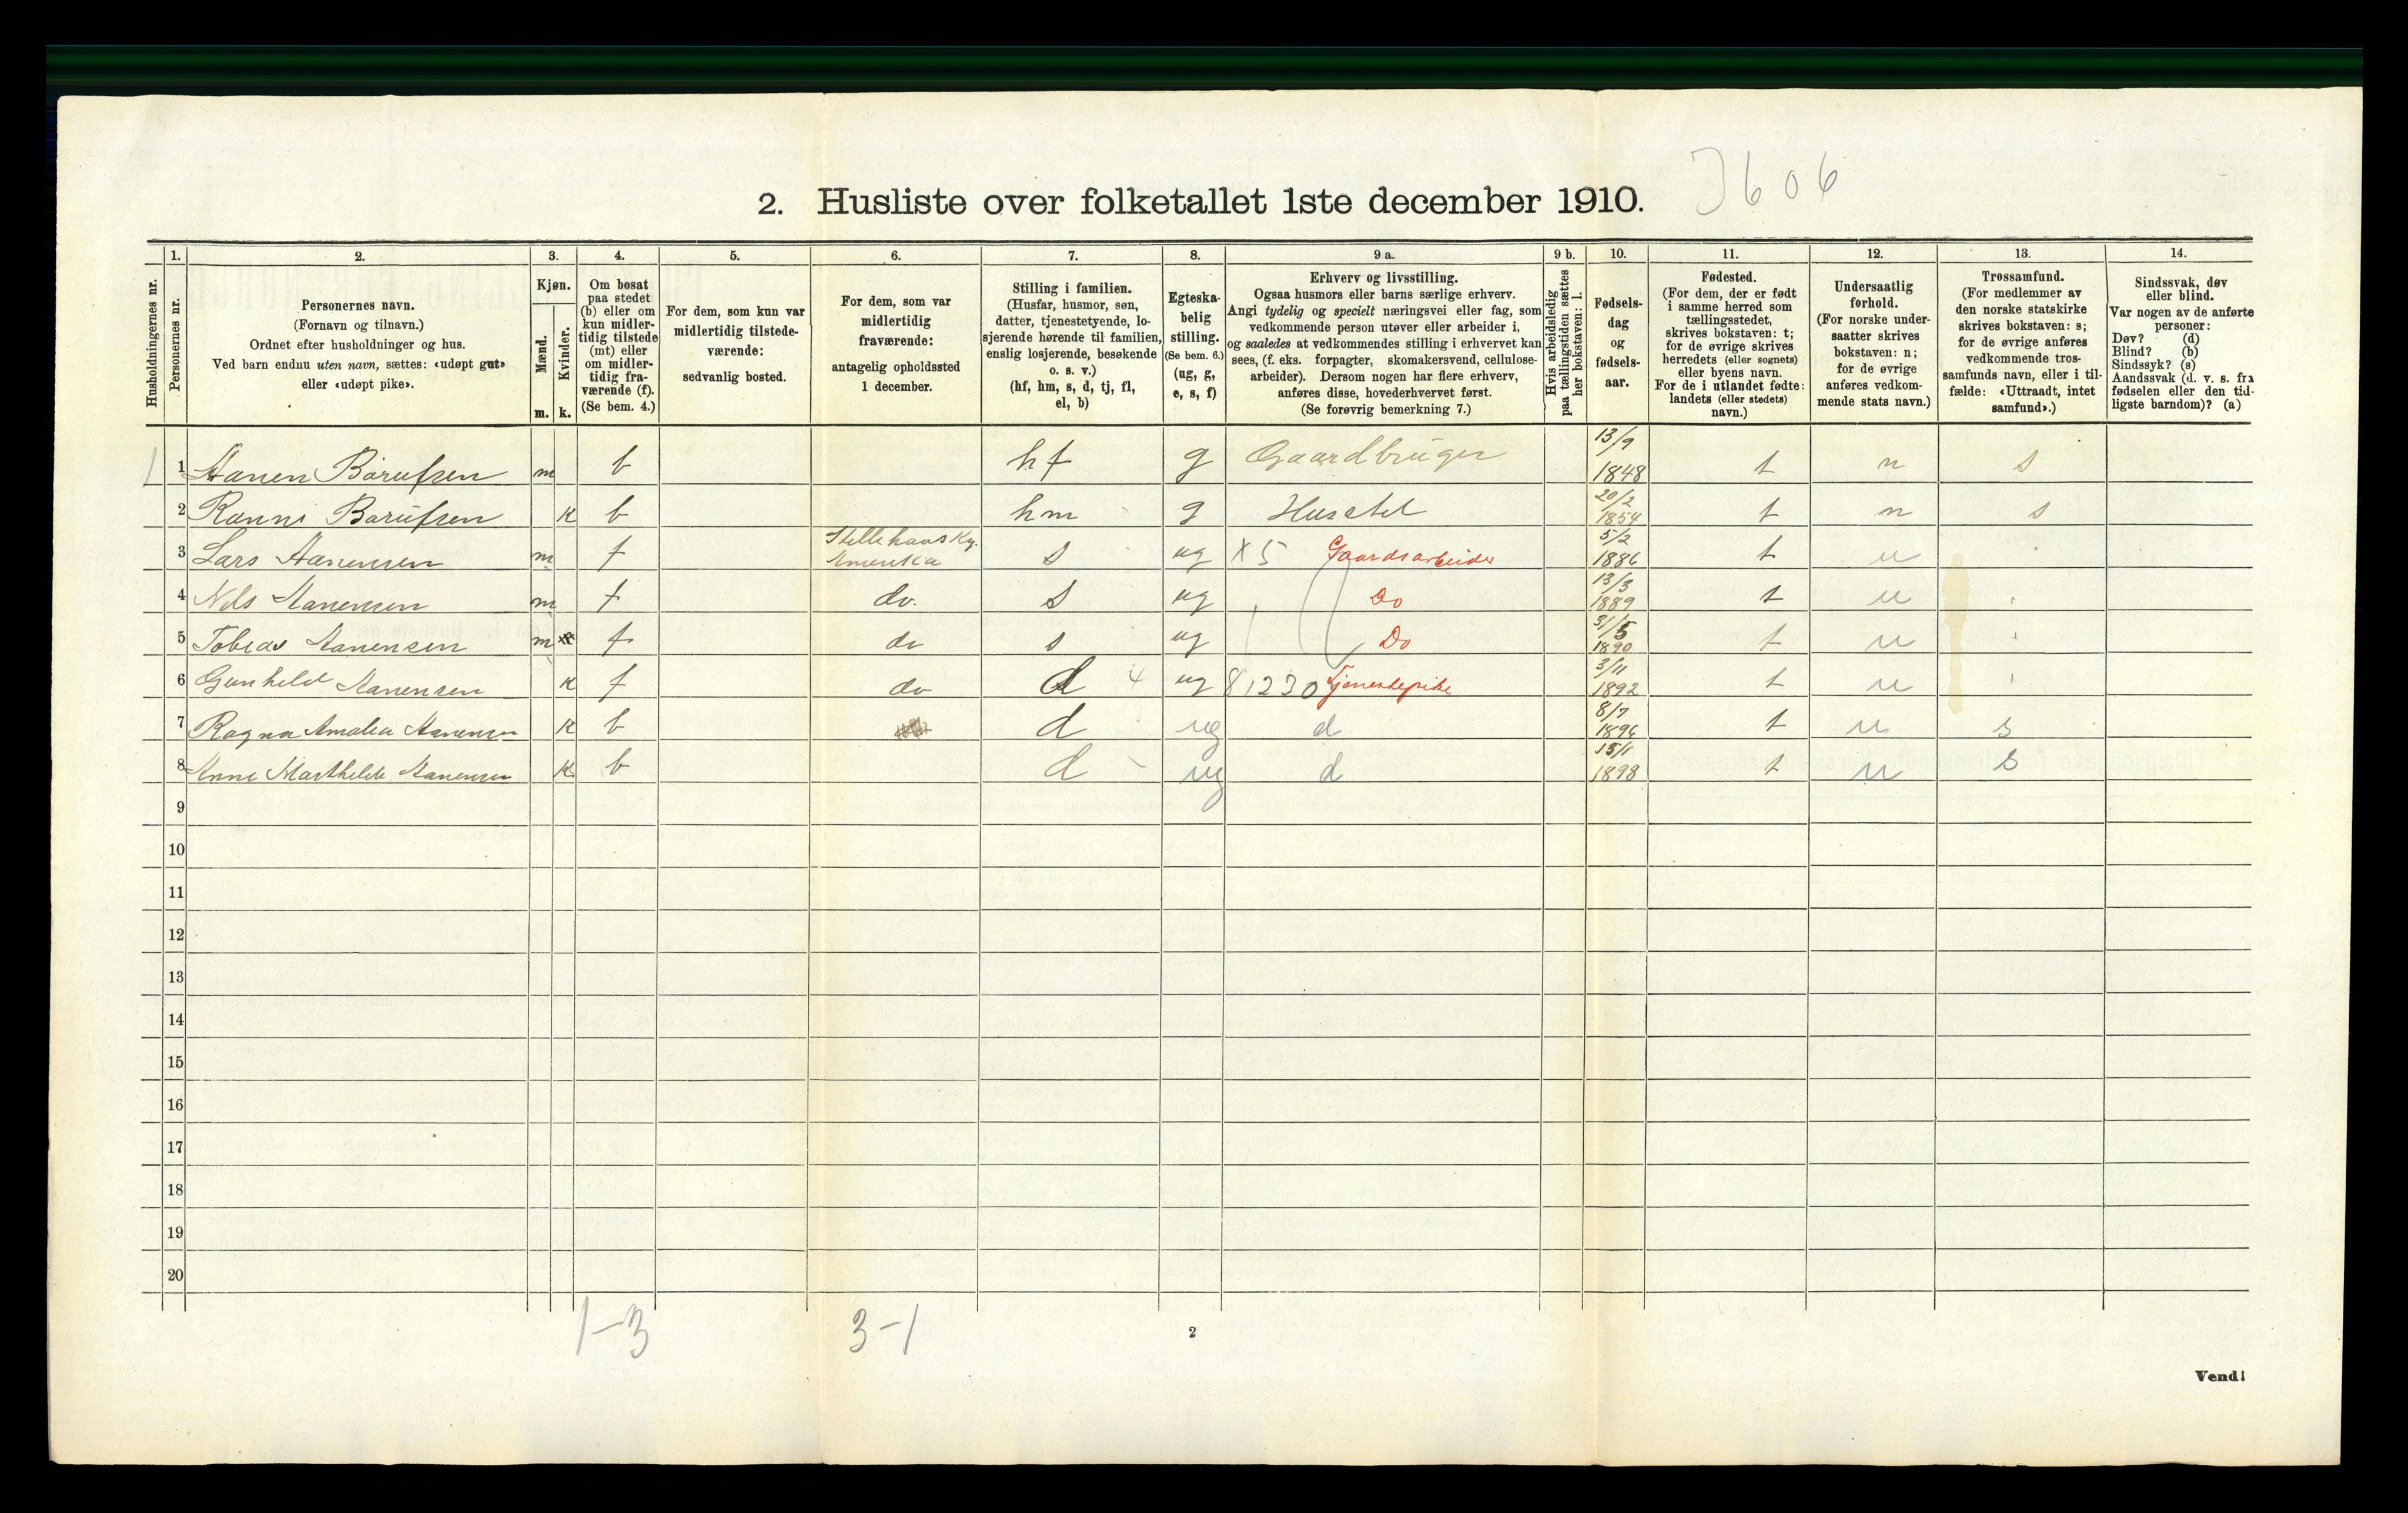 2. Husliste over folketallet 1ste december 1910.
Husholdningernes nr.
1. Personernes nr.
2. Personernes navn.
(Fornavn og tilnavn.)
Ordnet efter husholdninger og hus.
Ved barn endnu uten navn, sættes: «udøpt gut»
eller «udøpt pike».
3. Kjøn.
Mænd. Kvinder.
m. k.
4. Om bosat
paa stedet
(b) eller om
kun midler-
tidig tilstede
(mt) eller
om midler-
tidig fra-
værende (f).
(Se bem. 4.)
5. For dem, som kun var
midlertidig tilstede-
værende:
sedvanlig bosted.
6. For dem, som var
midlertidig
fraværende:
antagelig opholdssted
1 december.
7. Stilling i familien.
(Husfar, husmor, søn,
datter, tjenestetyende, lo-
sjerende hørende til familien,
enslig losjerende, besøkende
o. s. v.)
(hf, hm, s, d, tj, fl,
el, b)
8. Egteska-
belig
stilling.
(Se bem. 6.)
(ug, g,
e, s, f)
9 a. Erhverv og livsstilling.
Ogsaa husmors eller barns særlige erhverv.
Angi tydelig og specielt næringsvei eller fag, som
vedkommende person utøver eller arbeider i,
og saaledes at vedkommendes stilling i erhvervet kan
sees, (f. eks. forpagter, skomakersvend, cellulose-
arbeider). Dersom nogen har flere erhverv,
anføres disse, hovederhvervet først.
(Se forøvrig bemerkning 7.)
9 b. Hvis arbeidsledig
paa tællingstiden sættes
her bokstaven: l.
10. Fødsels-
dag
og
fødsels-
aar.
11. Fødested.
(For dem, der er født
i samme herred som
tællingsstedet,
skrives bokstaven: t;
for de øvrige skrives
herredets (eller sognets)
eller byens navn.
For de i utlandet fødte:
landets (eller stedets)
navn.)
12. Undersaatlig
forhold.
(For norske under-
saatter skrives
bokstaven: n;
for de øvrige
anføres vedkom-
mende stats navn.)
13. Trossamfund.
(For medlemmer av
den norske statskirke
skrives bokstaven: s;
for de øvrige anføres
vedkommende tros-
samfunds navn, eller i til-
fælde: «Uttraadt, intet
samfund».)
14. Sindssvak, døv
eller blind.
Var nogen av de anførte
personer:
Døv? (d)
Blind? (b)
Sindssyk? (s)
Aandssvak (d. v. s. fra
fødselen eller den tid-
ligste barndom)? (a)
1 1 Aanen Børufsen m b hf g Gaardbruger 13/9 1848 t n s
2 Ranni Børufsen k b hm g Husstel 20/2 1854 t n s
3 Lars Aanensen m f Stillehavs Ky. Amerika s ug x 5 Gaardsarbeider 5/2 1886 t n
4 Nils Aanensen m f do. s ug Do 13/3 1889 t n
5 Tobias Aanensen m f do s ug Do 31/5 1890 t n
6 Gunhild Aanensen k f do d 4 ug 81230 Tjenestepike 3/11 1892 t n
7 Ragna Amalia Aanensen k b d ug d 8/7 1896 t n s
8 Anne Marthilde Aanensen k b d ug d 15/1 1898 t n s
9
10
11
12
13
14
15
16
17
18
19
20
1-3 3-1
2
Vend!